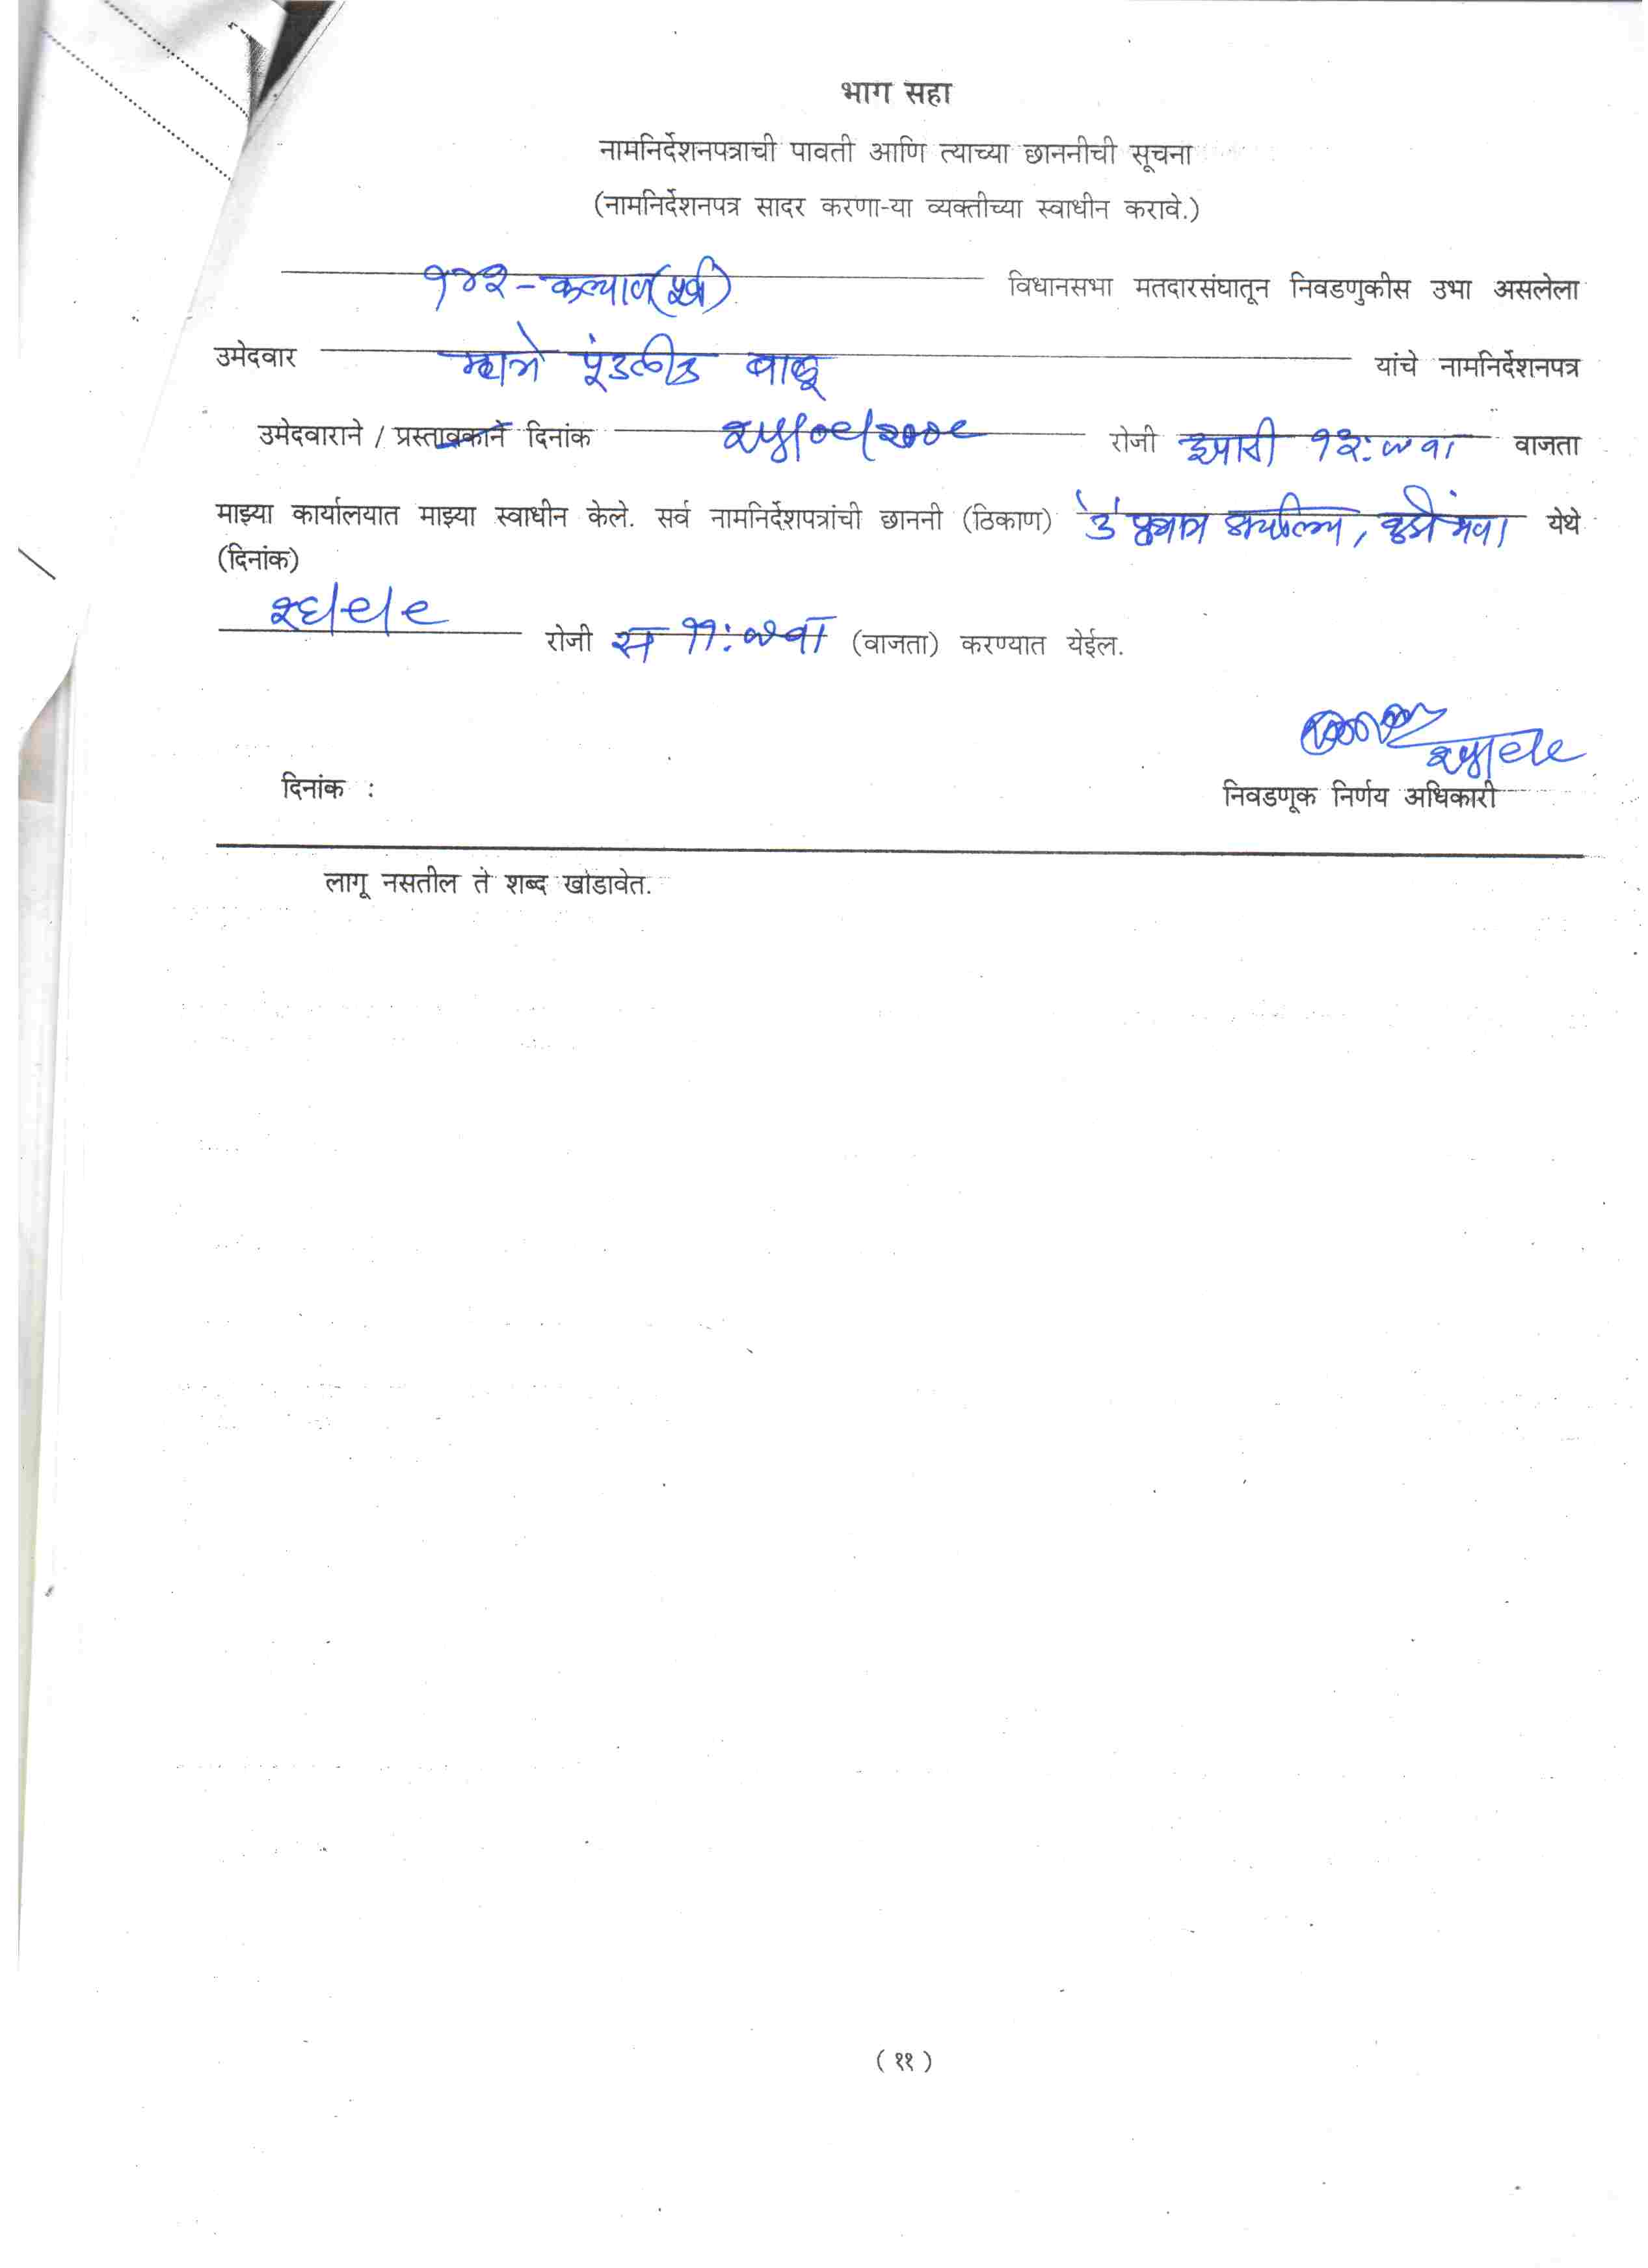 भाग सहा
नामनिर्देशनपत्राची पावती आणि त्याच्या छाननीची सूचना
(नामनिर्देशनपत्र सादर करणा-या व्यक्तीच्या स्वाधीन करावे.)
१४२ - कल्याण (पूर्व) विधानसभा मतदारसंघातून निवडणुकीस उभा असलेला
उमेदवार म्हात्रे पूंडलीक बाळू यांचे नामनिर्देशनपत्र
उमेदवाराने / प्रस्तावकाने दिनांक २५/०९/२००९ रोजी दुपारी १२:०० वा वाजता
माझ्या कार्यालयात माझ्या स्वाधीन केले. सर्व नामनिर्देशपत्रांची छाननी (ठिकाण) कार्यालय, येथे
(दिनांक)
२६/९/९ रोजी स ११:०० वा (वाजता) करण्यात येईल.
२५/९/९
दिनांक : निवडणूक निर्णय अधिकारी
लागू नसतील ते शब्द खोडावेत.
( ११ )